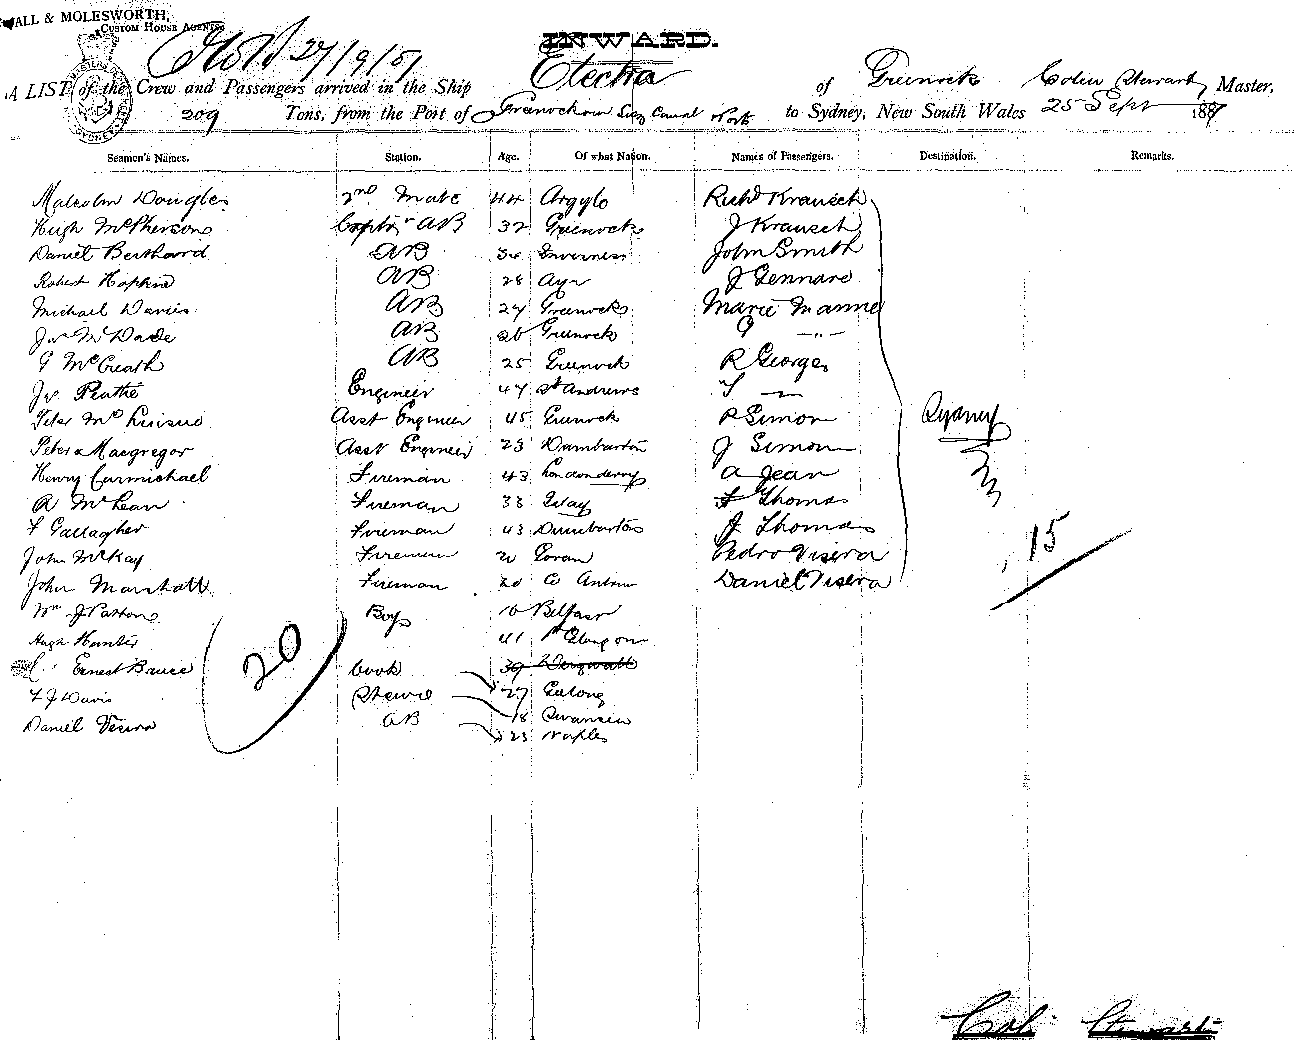 WALL & MOLESWORTH,
CUSTOM HOUSE AGENTS
27/9/87
INWARD.
Electra
A LIST of the Crew and Passengers arrived in the Ship of Greenock Colin Stewart, Master,
209 Tons, from the Port of Greenock Suez Canal Ports to Sydney, New South Wales 25 Sept 1887
Seamen's Names. Station. Age. Of what Nation. Names of Passengers. Destination. Remarks.
Malcolm Douglas 2nd Mate 44 Argyle Richd Krausch
Hugh McPherson AB 32 Greenock J Krausch
Daniel AB Inverness John Smith
Robert Hopkins AB 28 Ayr J Gennare
Michael Davies AB 27 Greenock Marie Manne
Jn McDade AB 26 Greenock G —"—
G McCreath AB 25 Greenock R Georges
Jn Engineer 47 St Andrews —
Peter Asst Engineer 45 Greenock P Simon Sydney
Peter Macgregor Asst Engineer 23 Dumbarton J Simon
Henry Carmichael Fireman 43 Londonderry A Jean
A McLean Fireman 38 Islay F Thomas
F Gallagher Fireman 43 Dumbarton J Thomas 15
John McKay Fireman 20 Govan Pedro Visera
John Marshall Fireman 20 Co Antrim Daniel Visera
Wm J Patton Boy Belfast
Hugh Hunter 41 Glasgow
20
Ernest Bruce Cook 39 Dingwall
F J Davis Steward 27 Geelong
Daniel Visera AB 18 Swansea
23 Naples
Col Stewart